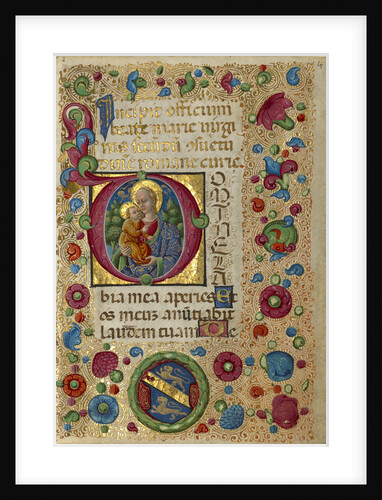 Incipit officium
beate marie uirgi
nis secūdū ɔsuetu
dine romane curie.
DOMINE LA
bia mea aperies Et
os meum anūtiabit
laudem tuam De